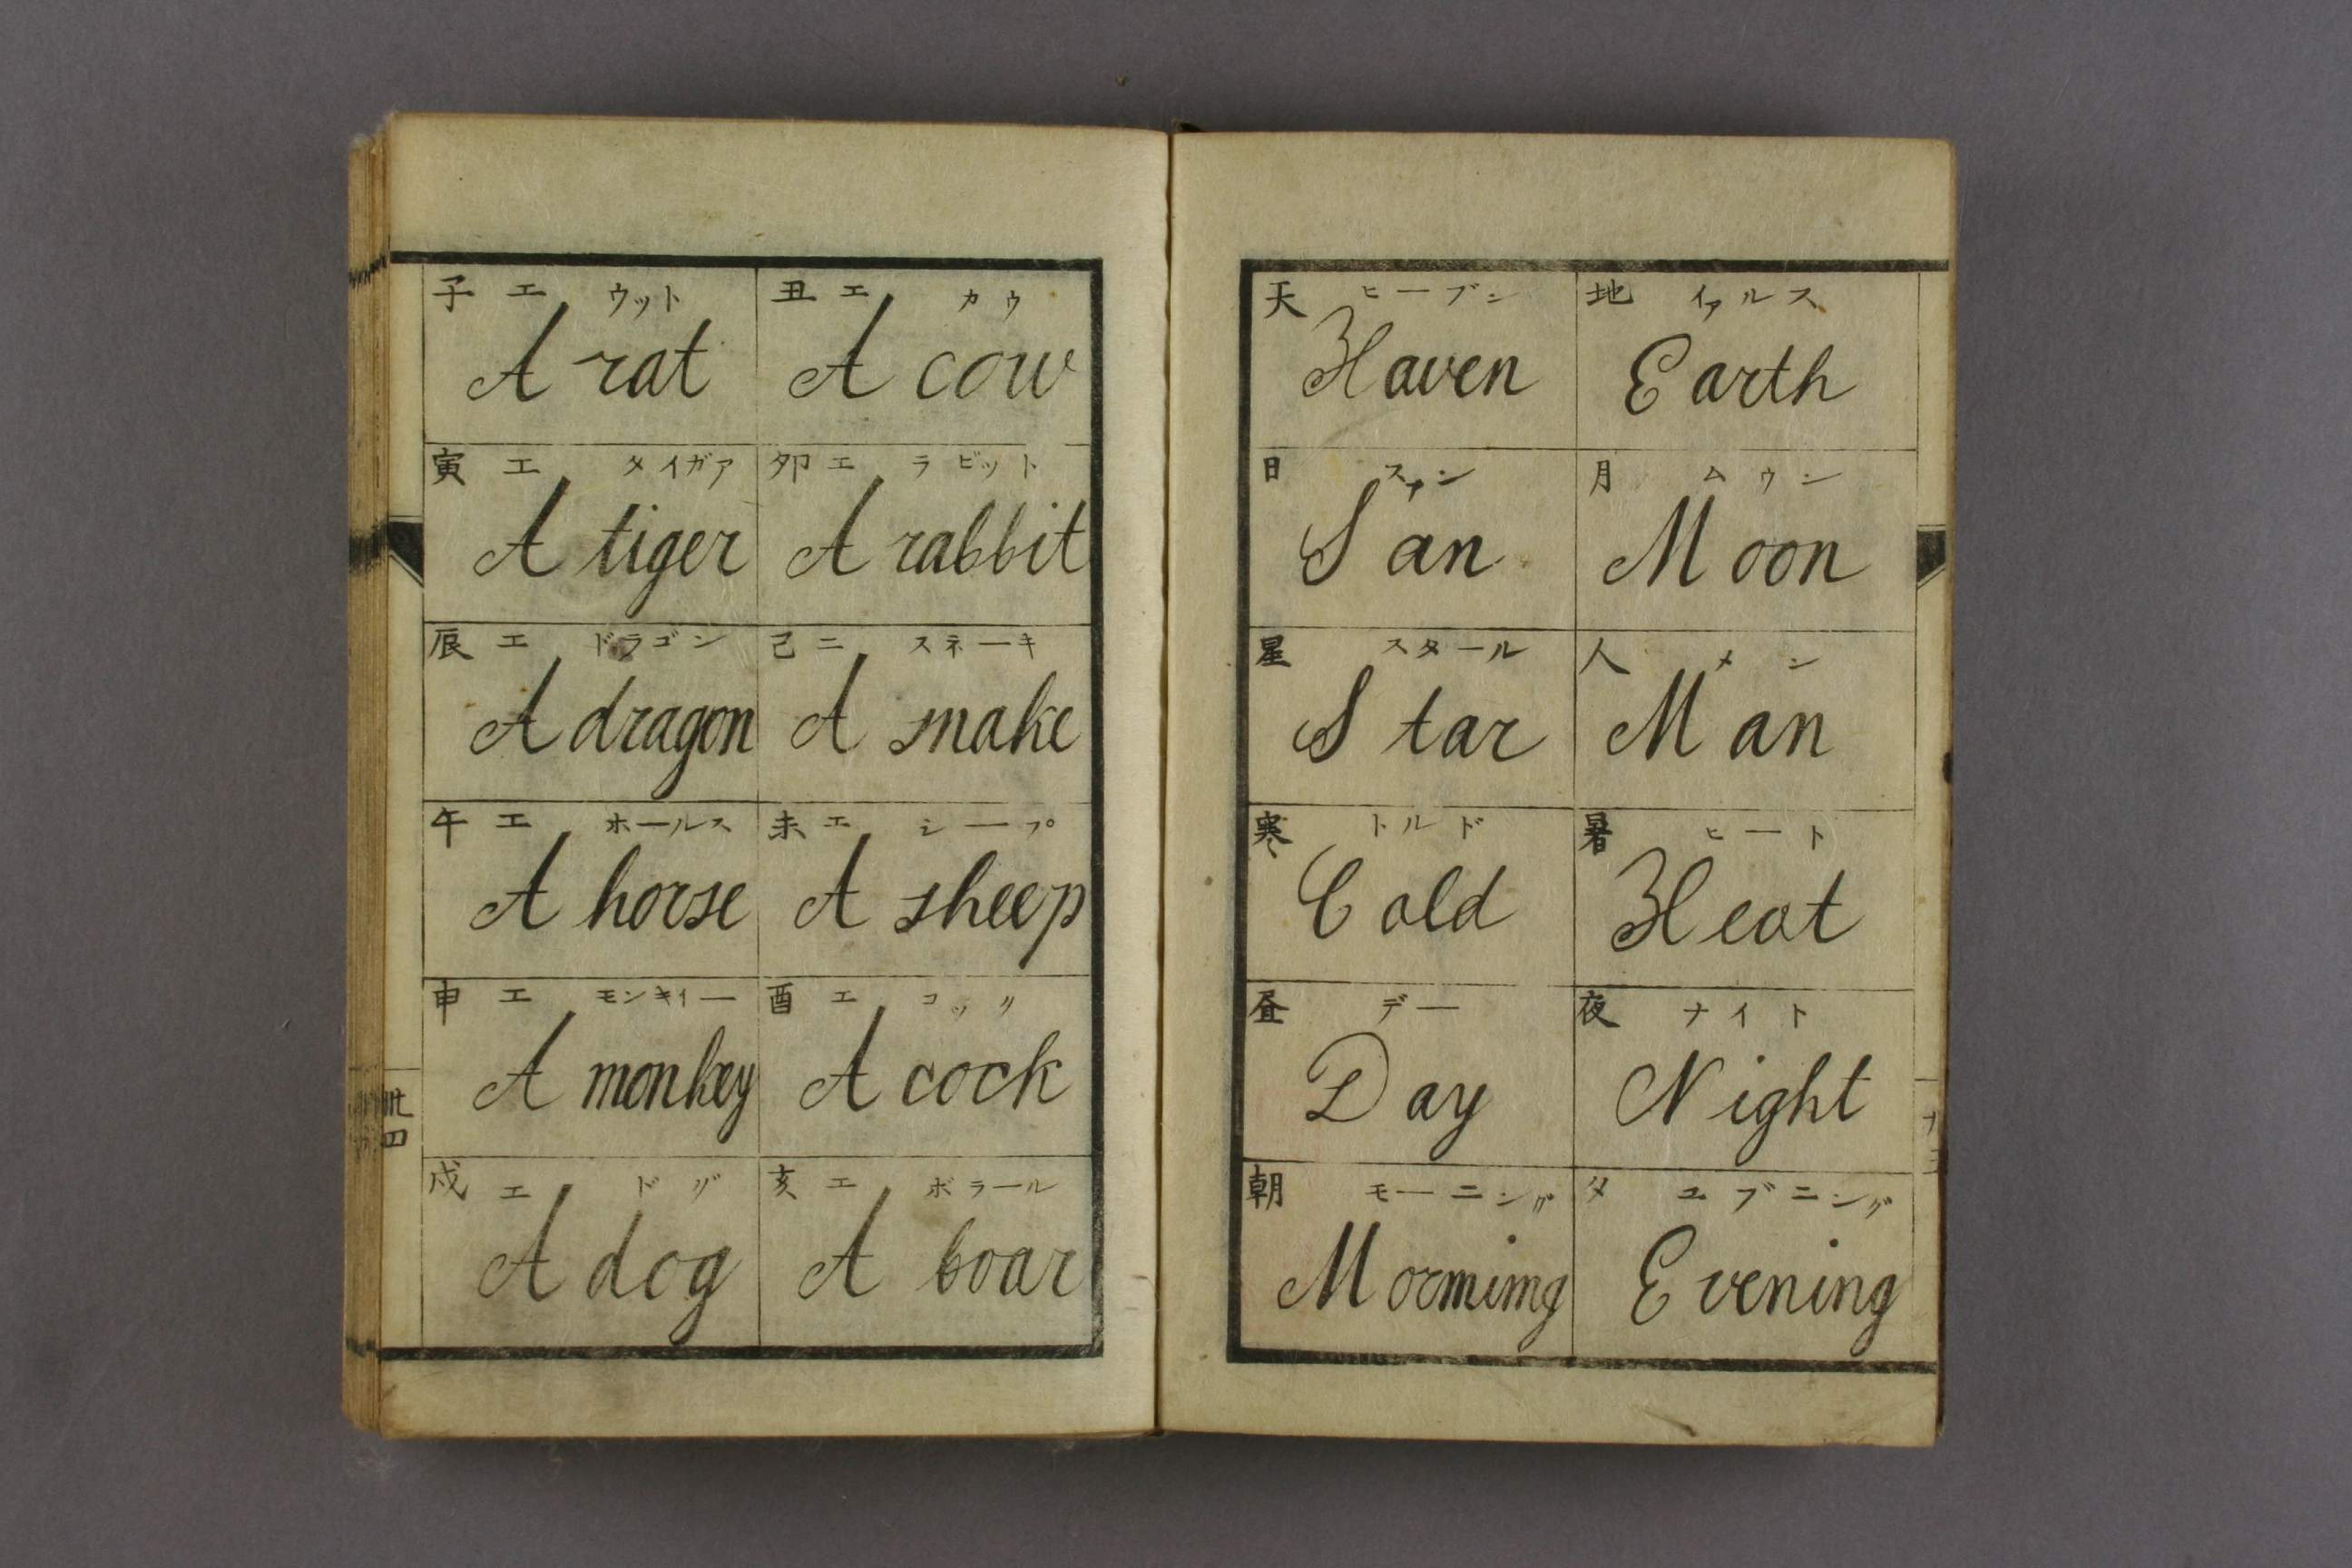 子 エ ウット
A rat
丑 エ カウ
A cow
寅 エ タイガア
A tiger
卯 エ ラビット
A rabbit
辰 エ ドラゴン
A dragon
己 ニ スネーキ
A snake
午 エ ホールス
A horse
未 エ シープ
A sheep
申 エ モンキイー
A monkey
酉 エ コック
A cock
戌 エ ドグ
A dog
亥 エ ボラール
A boar
卅四
天 ヒーブン
Haven
地 イアルス
Earth
日 スアン
San
月 ムウン
Moon
星 スタール
Star
人 メン
Man
寒 トルド
Cold
暑 ヒート
Heat
昼 デー
Day
夜 ナイト
Night
朝 モーニング
Morming
夕 エブニング
Evening